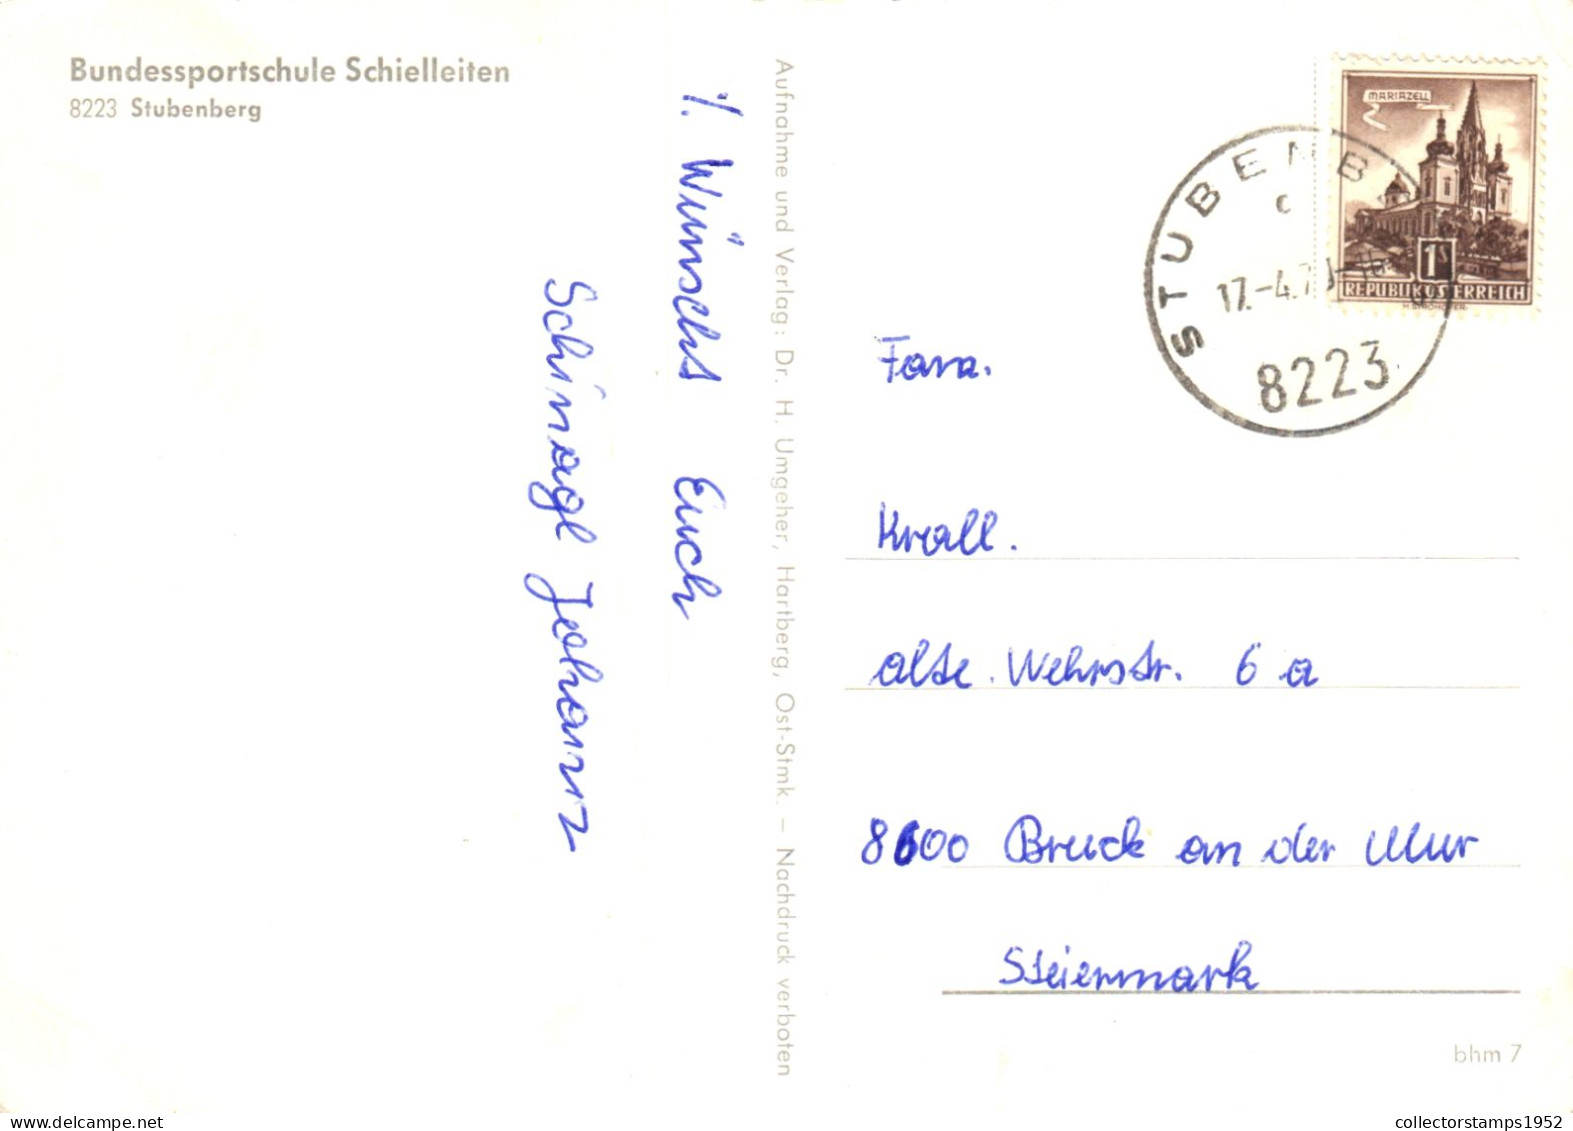 Bundessportschule Schielleiten
8223 Stubenberg
⁒ Wünscht Euch
Schinagl Johann
Aufnahme und Verlag: Dr. H. Umgeher, Hartberg, Ost-Stmk. – Nachdruck verboten
MARIAZELL
1S
REPUBLIK ÖSTERREICH
STUBENB
c
17.-4.7
8223
Fam.
Krall.
alte. Wehrstr. 6 a
8600 Bruck an der Mur
Steiermark
bhm 7
collectorstamps1952